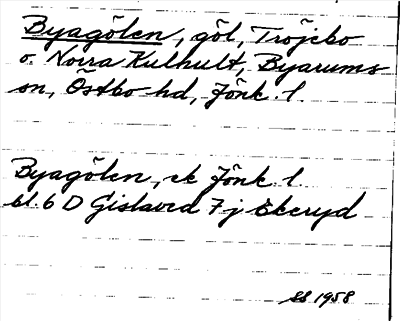 Byagölen, göl, Tröjebo
o. Norra Kulhult, Byarums
sn, Östbo hd, Jönk. l.
Byagölen, ek Jönk. l.
bl. 6 D Gislaved 7 j Ekeryd
SB 1958